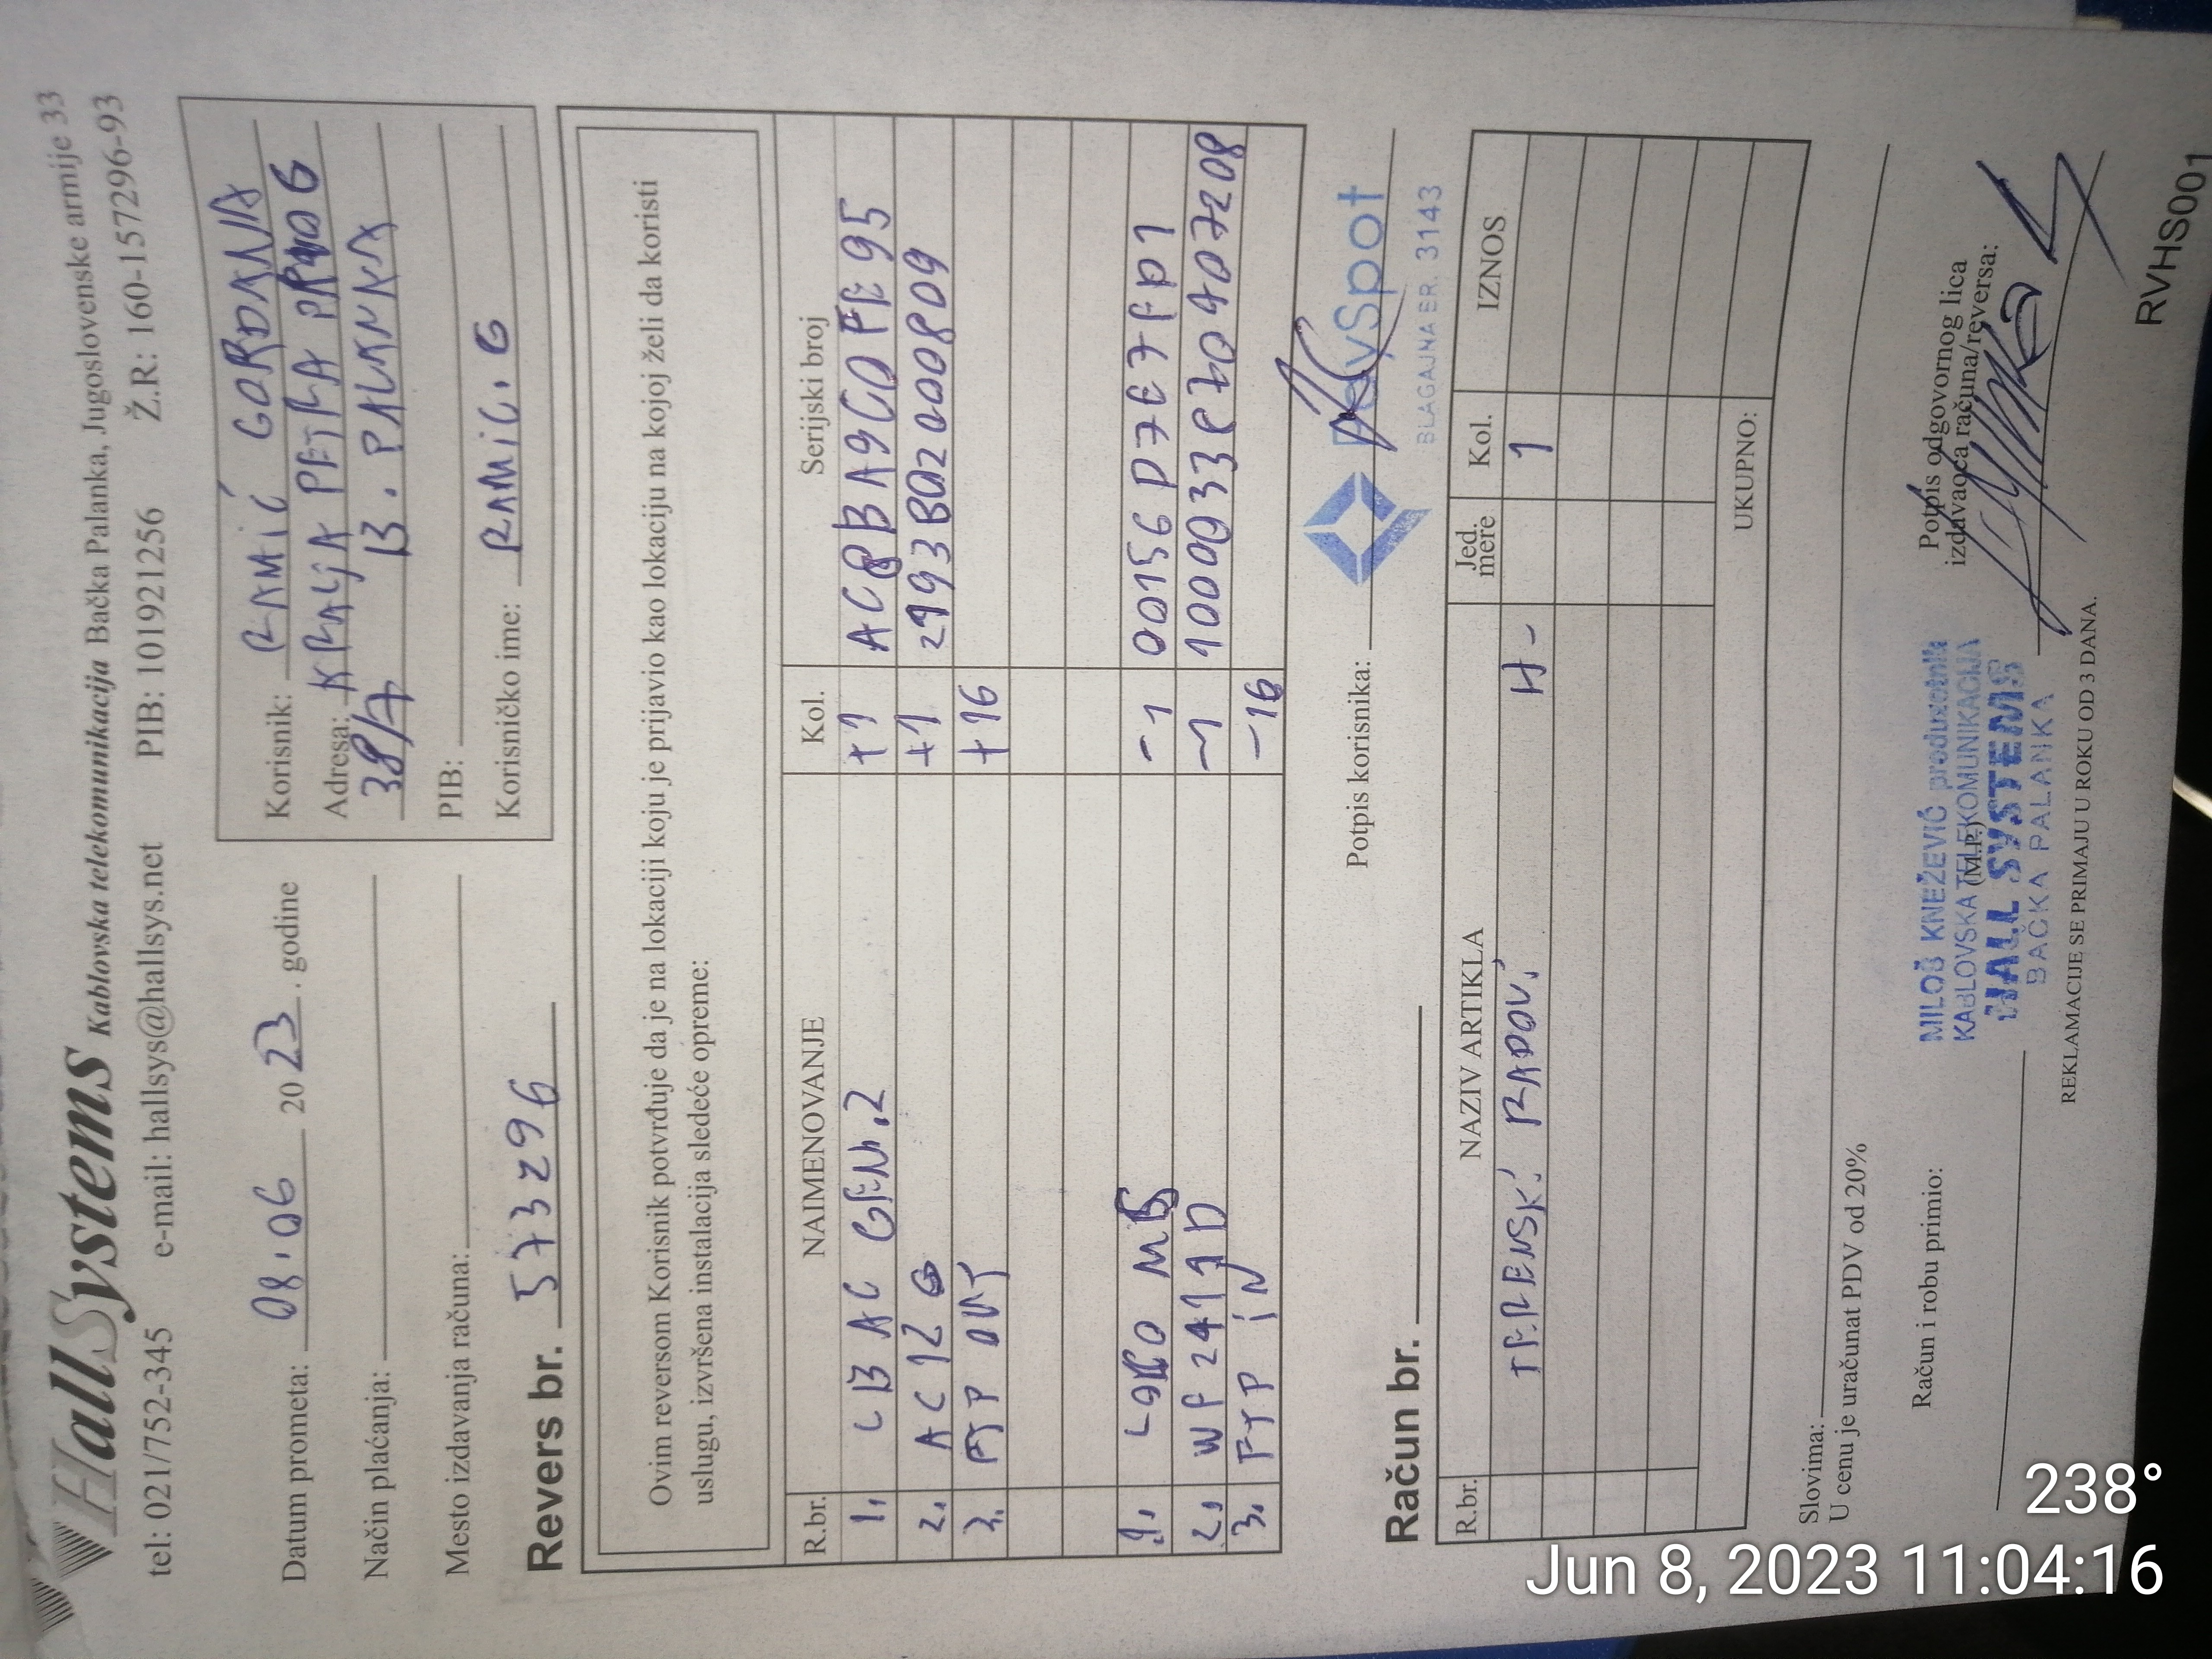 HallSystems Kablovska telekomunikacija Bačka Palanka, Jugoslovenske armije 33
tel: 021/752-345 e-mail: hallsys@hallsys.net PIB: 101921256 Ž.R: 160-157296-93
Datum prometa: 08.06 2023. godine
Način plaćanja:
Mesto izdavanja računa:
Korisnik: RAMIĆ GORDANA
Adresa: KRALJA PETRA PRVOG
38/7 B. PALANKA
PIB:
Korisničko ime: RAMIC.G
Revers br. 573296
Ovim reversom Korisnik potvrđuje da je na lokaciji koju je prijavio kao lokaciju na kojoj želi da koristi
uslugu, izvršena instalacija sledeće opreme:
R.br. NAIMENOVANJE Kol. Serijski broj
1. LB AC GEN.2 +1
2. AC12 G +1 2193B02000809
3. FTP OUT +16
1. MB -1 00156D7E7FD1
2. WF2411D -1
3. FTP IN -16
Potpis korisnika:
PaySpot
BLAGAJNA BR. 3143
Račun br.
R.br. NAZIV ARTIKLA Jed. mere Kol. IZNOS
TERENSKI RADOVI H- 1
UKUPNO:
Slovima:
U cenu je uračunat PDV od 20%
Račun i robu primio:
MILOŠ KNEŽEVIĆ preduzetnik
KABLOVSKA TELEKOMUNIKACIJA
(M.P.)
HALL SYSTEMS
BAČKA PALANKA
Potpis odgovornog lica
izdavaoca računa/reversa:
REKLAMACIJE SE PRIMAJU U ROKU OD 3 DANA.
RVHS001
238°
Jun 8, 2023 11:04:16